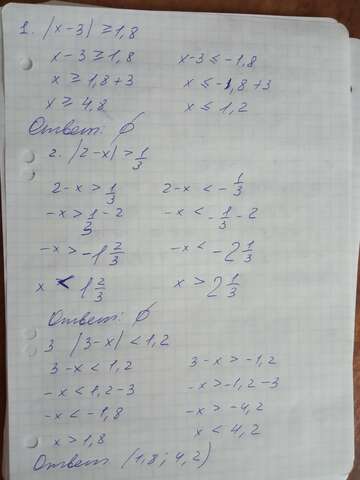 1. |x-3| ≥ 1,8
x-3 ≥ 1,8    x-3 ≤ -1,8
x ≥ 1,8+3    x ≤ -1,8+3
x ≥ 4,8    x ≤ 1,2
Ответ: ∅
2. |2-x| > 1/3
2-x > 1/3    2-x < -1/3
-x > 1/3 - 2    -x < -1/3 - 2
-x > -1 2/3    -x < -2 1/3
x < 1 2/3    x > 2 1/3
Ответ: ∅
3 |3-x| < 1,2
3-x < 1,2    3-x > -1,2
-x < 1,2-3    -x > -1,2-3
-x < -1,8    -x > -4,2
x > 1,8    x < 4,2
Ответ (1,8; 4,2)